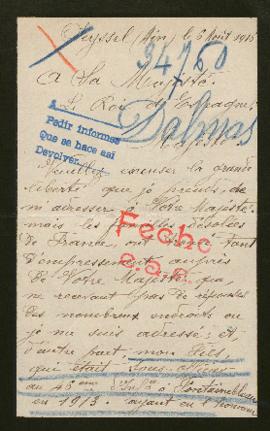 Seyssel (Ain), le 6 Août 1915
34760
A Sa Majesté
Le Roi d'Espagne
Dalmas
Pedir informes
Que se hace así
Devolver
Majesté
Veuillez excuser la grande
liberté que je prends de
m'adresser à Votre Majesté
mais les désolées
de France, ont tant
d'empressement auprès
de Votre Majesté que,
ne recevant pas de réponses
des nombreux endroits où
je me suis adressé; et
d'autre part, mon fils,
qui était sous-officier
au 46ème d'Inf. à Fontainebleau
en 1913 ayant
Fecho